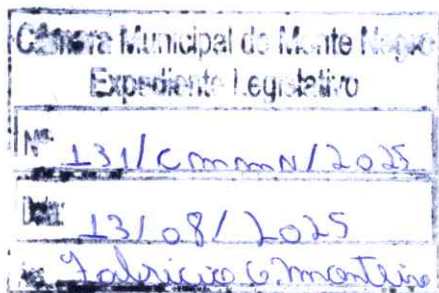 Câmara Municipal de Monte Negro
Expediente Legislativo
Nº: 131/CMMN/2025
Data: 13/08/2025
Fabricio C. Monteiro